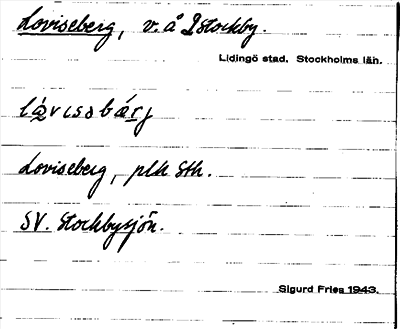 Loviseberg, v. å Stockby.
Lidingö stad. Stockholms län.
Loviseberg, plk Sth.
SV. Stockbysjön.
Sigurd Fries 1943.